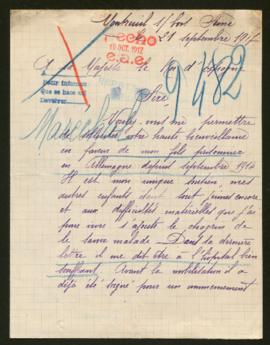 Montreuil s/ Bois Seine
21 septembre 1917
Fecho
10 OCT. 1917
e.a.e.
A Sa Majesté le roi d'Espagne
Pedir informes
Que se hace au
Devolver
Sire
9482
Voulez vous me permettre
de solliciter votre haute bienveillance
en faveur de mon fils prisonnier
en Allemagne depuis septembre 1914
Il est mon unique soutien, mes
autres enfants sont jeunes encore
et aux difficultés matérielles que j'ai
pour vivre s'ajoute le chagrin de
le savoir malade. Dans sa dernière
lettre, il me dit être à l'hôpital bien
souffrant. Avant la mobilisation il a
déjà été soigné pour un commencement